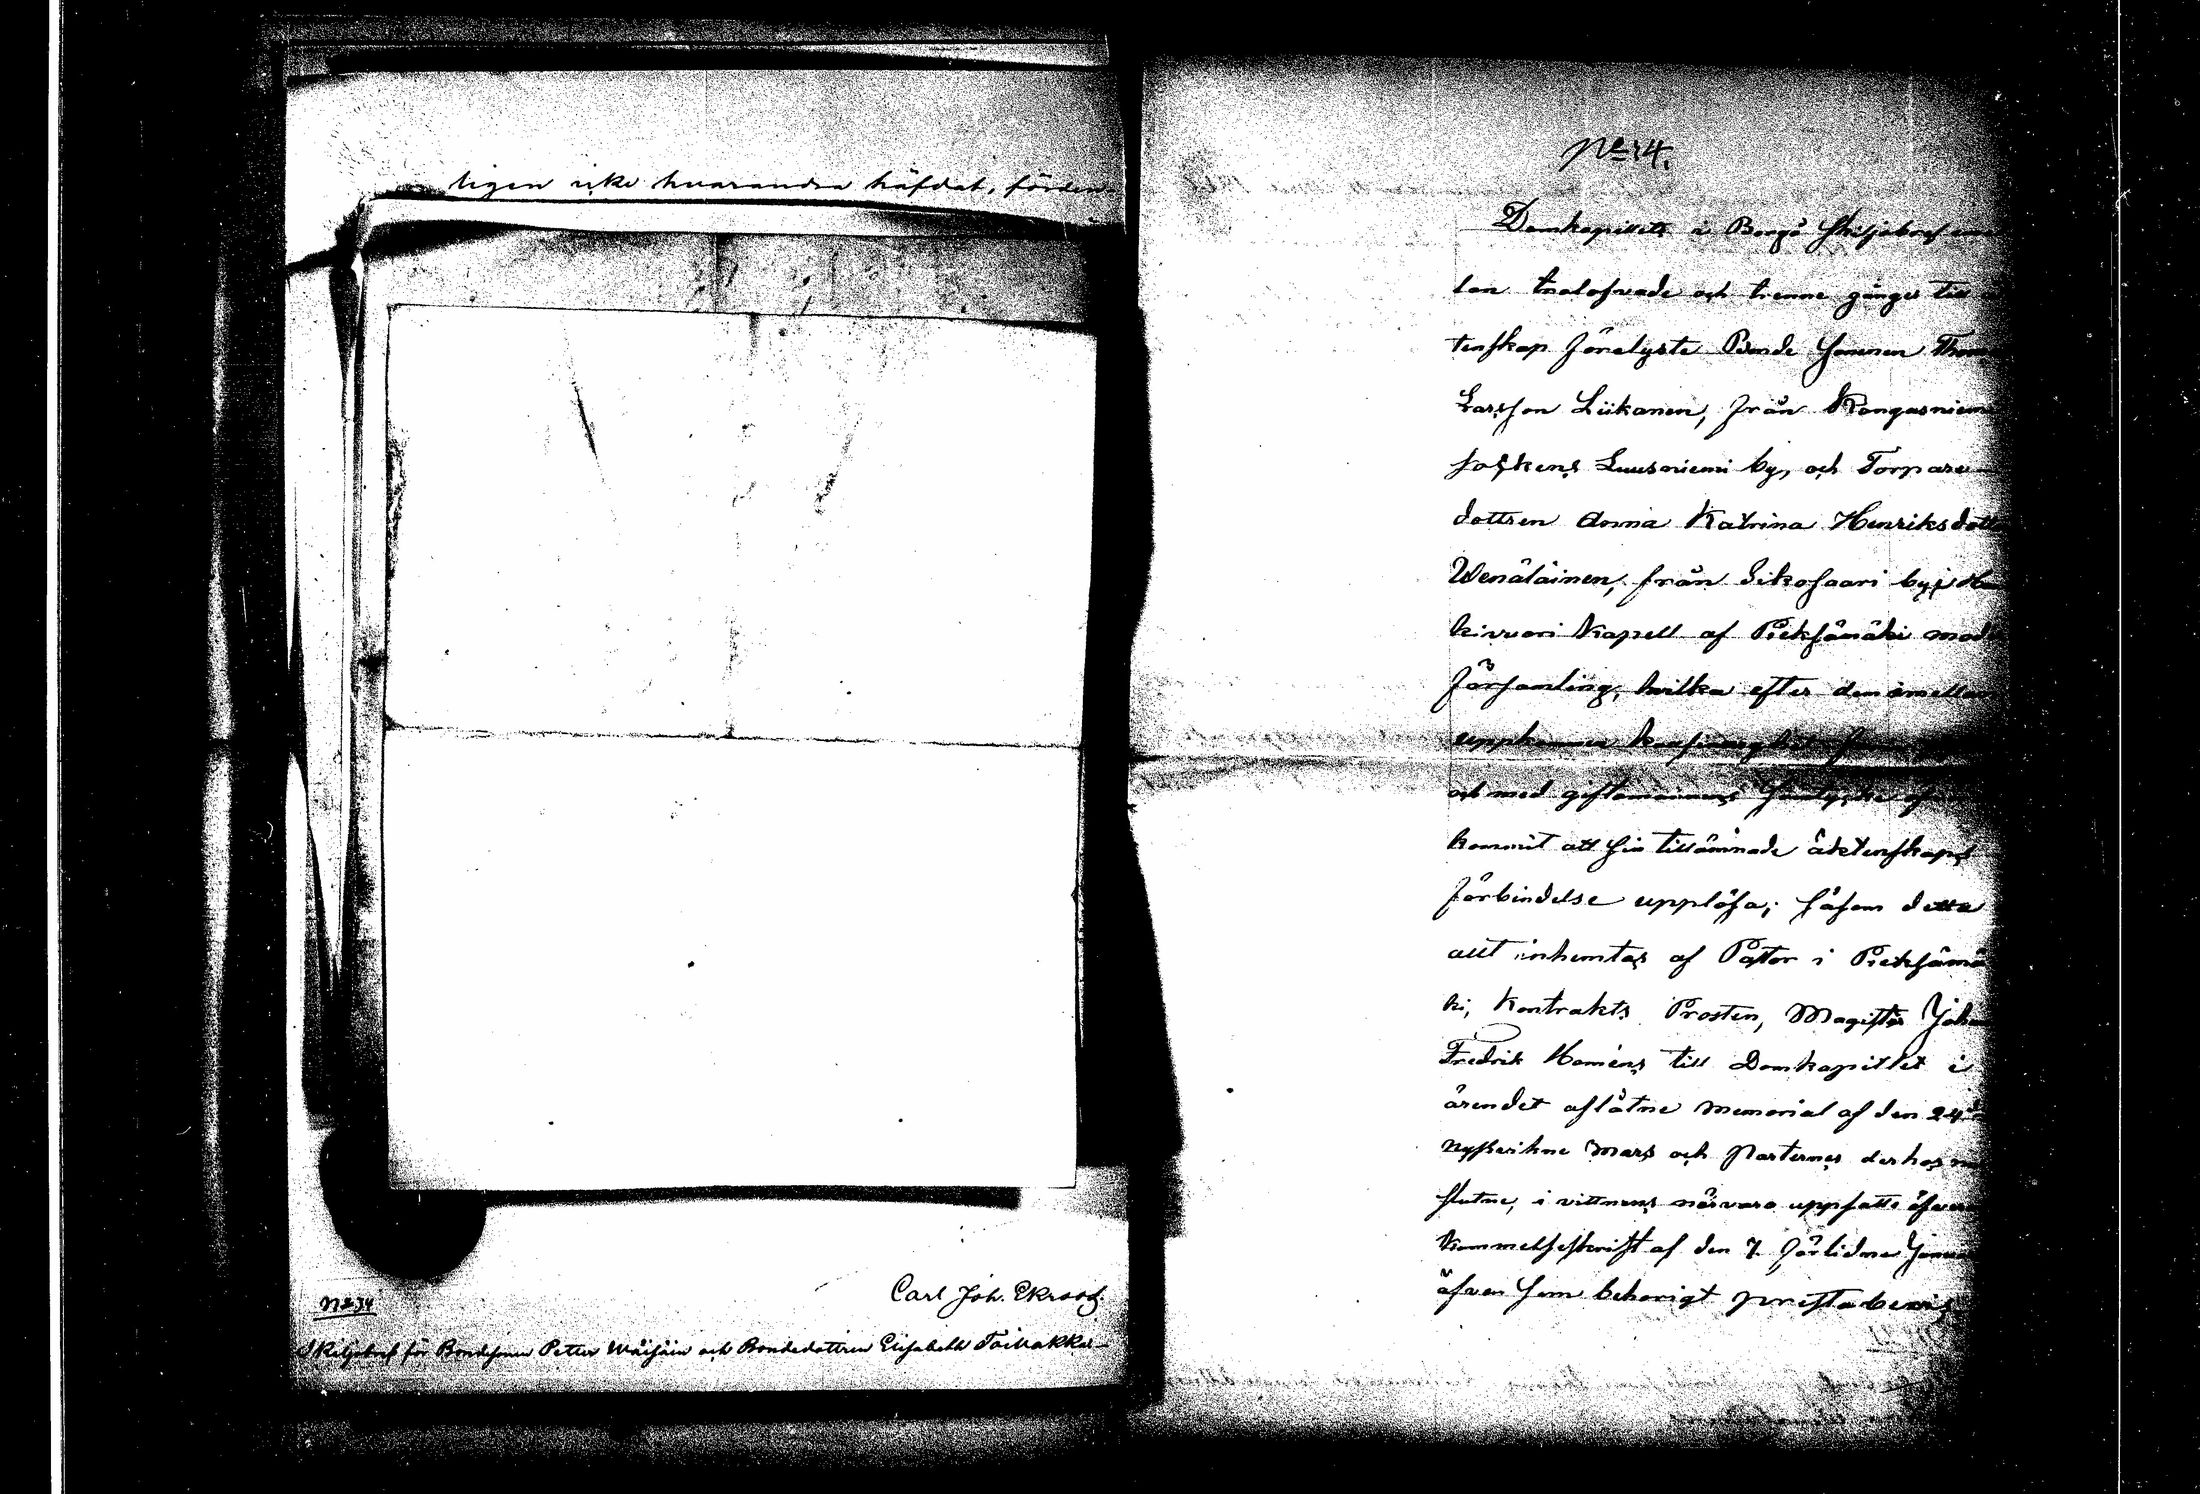 ligen icke hvarandra häfdat, förden-
Carl Joh. Ekroos.
No 34
Skiljebref för Bondesonen Petter Wäisäin och Bondedottren Elisabeth Taivakka-
No 14.
Domkapitlets i Borgå Skiljobref emel
lan trolofvade och trenne gånger till
tenskap förelyste Bonde Sonnen Thom
Larsson Liikanen, från Kangasniemi
sockens Luusniemi by, och Torpare
dottren Anna Katrina Henriksdotte
Wenäläinen, från Sikosaari by i Ha
kivuori Kapell af Pieksämäki mode
församling, hvilka efter dem emellan
uppkommen
och med giftomannens samtycke
kommit att sin tillämnade äktenskaps
förbindelse upplösa; såsom detta
allt inhemtas af Pastor i Pieksämä
ki, Kontrakts Prosten, Magister Joha
Fredrik Homéns till Domkapitlet i
ärendet aflåtne memorial af den 24de
nystvikne Mars och Parternes derhos
slutne, i vittnens närvaro uppsatte öfver
kommelseskrift af den 7 förlidne Janua
äfven som behörigt prestabevis